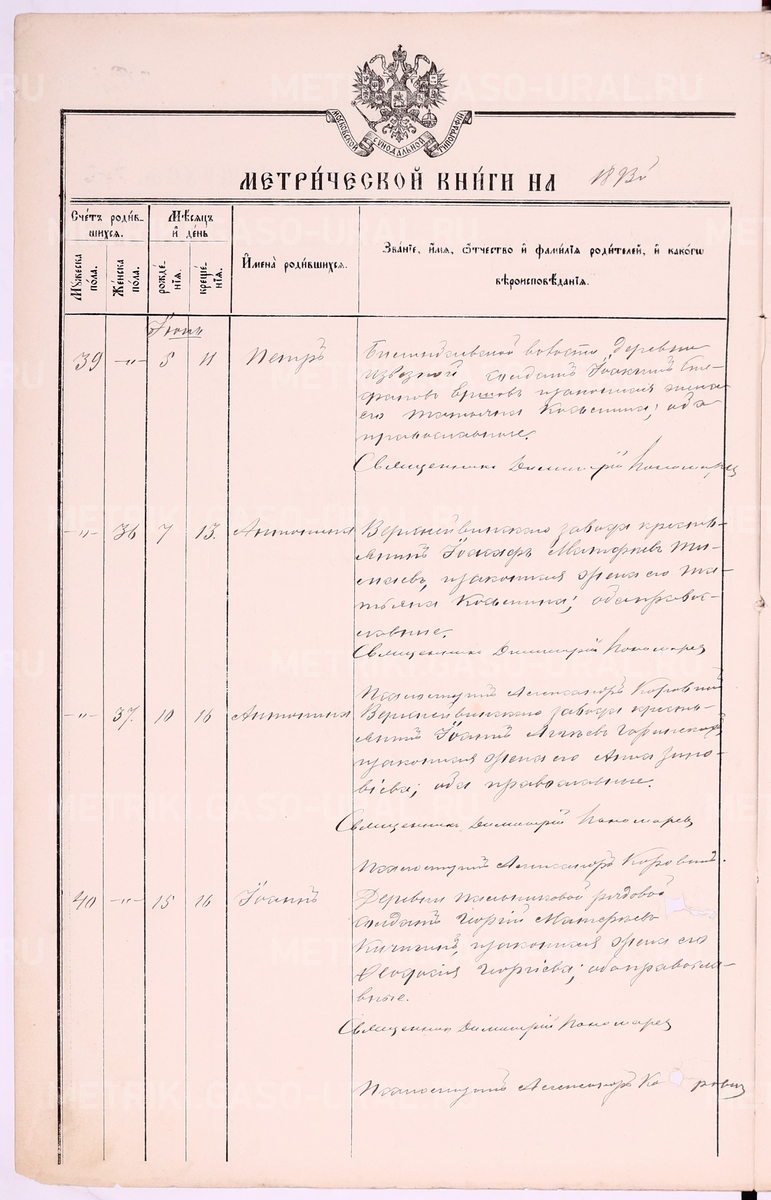 МОСКОВСКОЙ СУНОДАЛЬНОЙ ТИПОГРАФІИ
МЕТРИ́ЧЕСКОЙ КНИ́ГИ НА 1893й
Сче́тъ роди́в-
шихся.
Мѣ́сяцъ
и де́нь
Имена̀ роди́вшихся.
Зва́нїе, и́мя, ѻ́тчество и фами́лїя роди́телей, и како́гѡ
вѣроисповѣ́данїя.
Мꙋ́жеска
по́ла.
Же́нска
по́ла.
рожде́-
нїя.
креще́-
нїя.
Іюнь
39 —„— 5 11 Петръ
волости, деревни
солдатъ Іоакимъ Сте-
фановъ Ершовъ и законная жена
его Татьяна Козьмина; оба
православные.
Священникъ Димитрій Пономарев
—„— 36 7 13. Антонина Верхнейвинскаго завода кресть-
янинъ Іоасафъ Матѳеевъ
и законная жена его Та-
тьяна Козьмина; оба право-
славные.
Священникъ Димитрій Пономарев
Псаломщикъ Александръ Коровин
—„— 37. 10 16 Антонина Верхнейвинскаго завода кресть-
янинъ Іоаннъ
и законная жена его Анна Зино-
віева; оба православные.
Священникъ Димитрій Пономарев
Псаломщикъ Александръ Коровин.
40 —„— 15 16 Іоаннъ Деревни Пальниковой рядовой
солдатъ Георгій Матѳеевъ
Кичигинъ, и законная жена его
Ѳеодосія Георгіева; оба правосла-
вные.
Священникъ Димитрій Пономарев
Псаломщикъ Александръ Коровин
METRIKI.GASO-URAL.RU